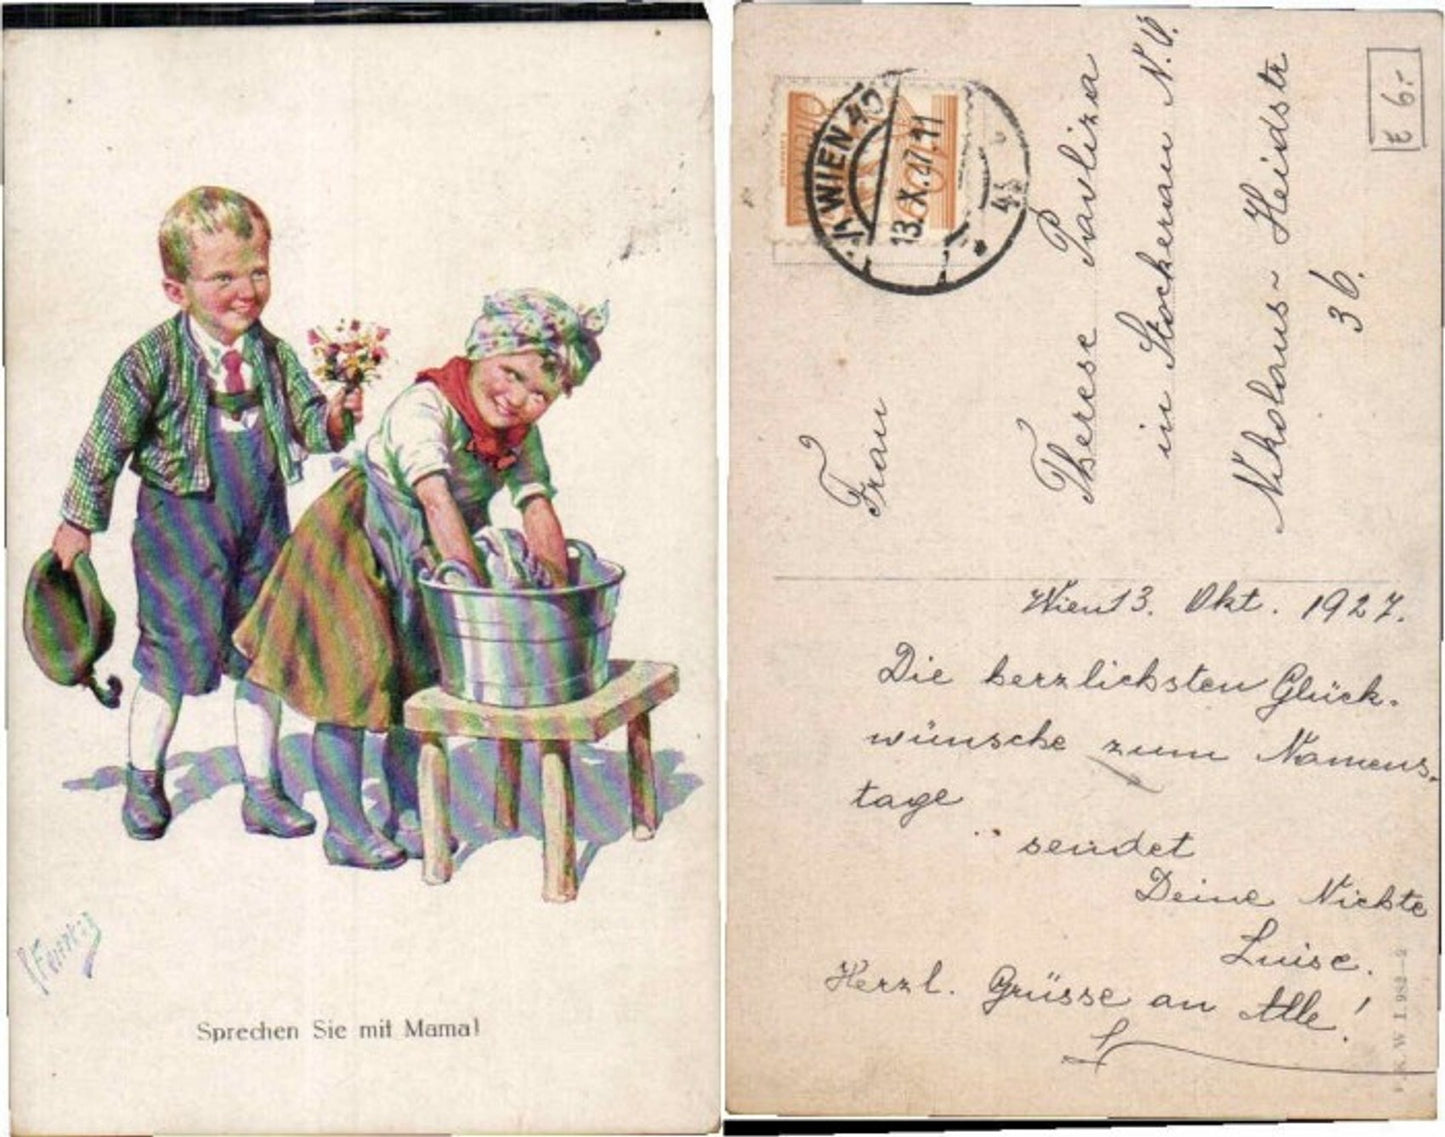 Sprechen Sie mit Mama!
WIEN 40
13.X.27.11
Frau
Therese Pavliza
in Stockerau N.Ö.
Nikolaus-Heidstr
36.
6.-
Wien 13. Okt. 1927.
Die herzlichsten Glück-
wünsche zum Namens-
tage
sendet
Deine Nichte
Luise.
Herzl. Grüsse an Alle!
K. W I. 982-2